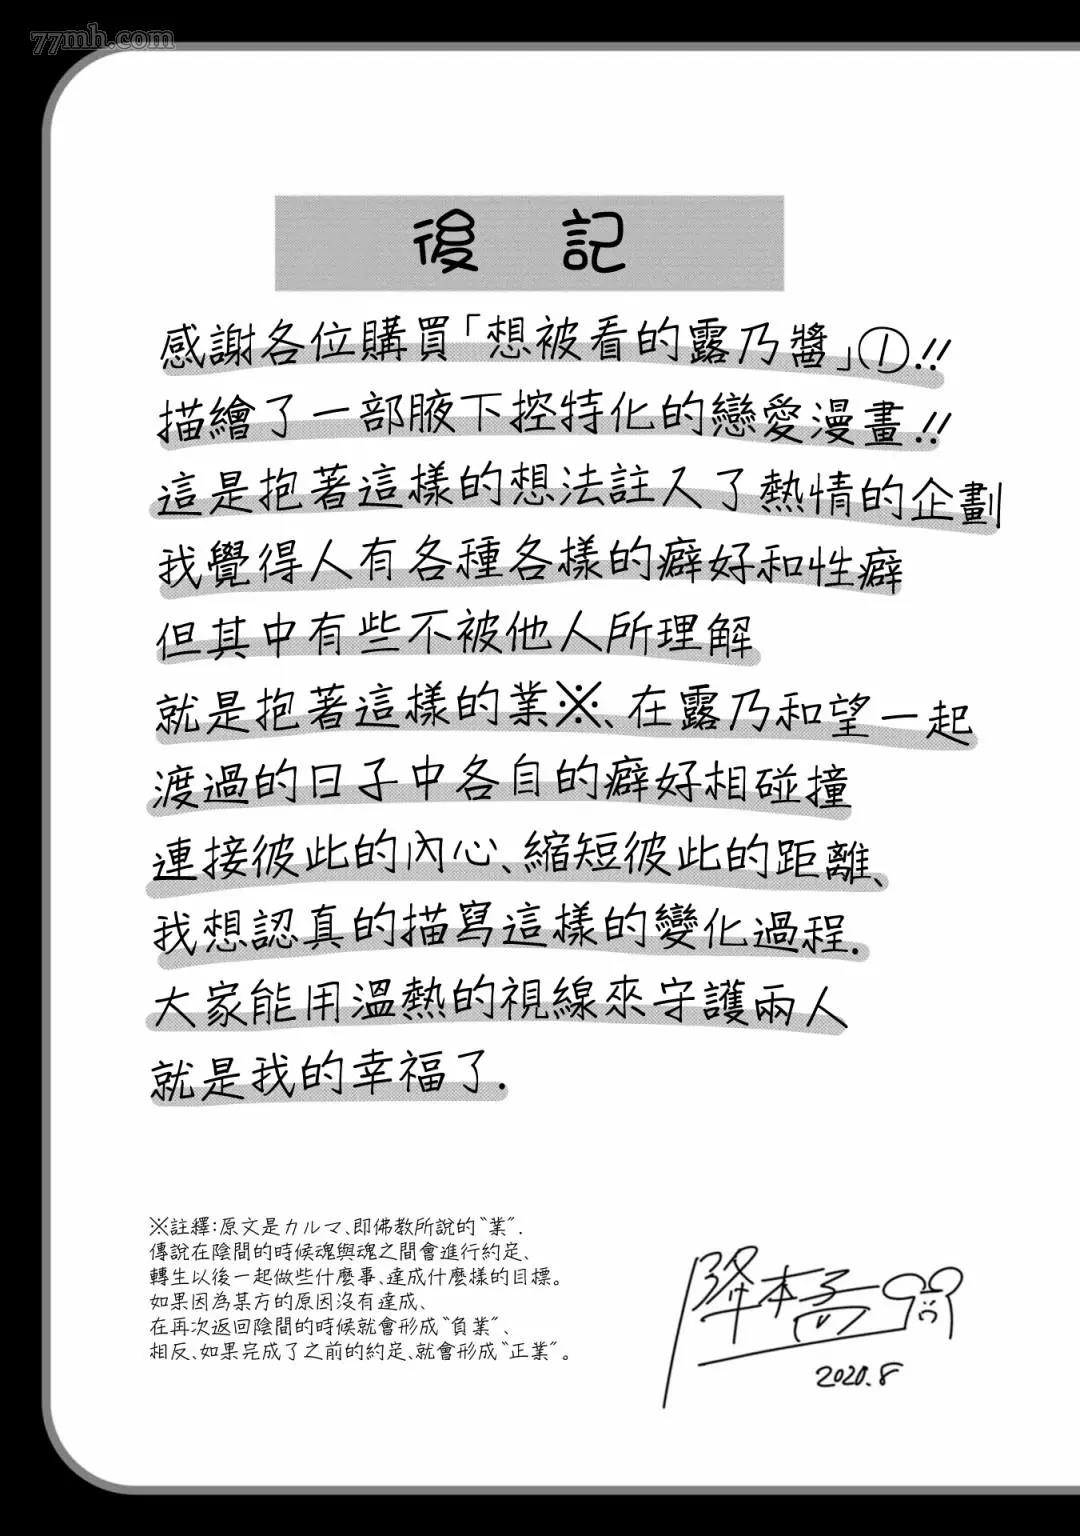 77mh.com
後記
感謝各位購買「想被看的露乃醬」①!!
描繪了一部腋下控特化的戀愛漫畫!!
這是抱著這樣的想法註入了熱情的企劃
我覺得人有各種各樣的癖好和性癖
但其中有些不被他人所理解
就是抱著這樣的業※、在露乃和望一起
渡過的日子中各自的癖好相碰撞
連接彼此的內心、縮短彼此的距離、
我想認真的描寫這樣的變化過程.
大家能用溫熱的視線來守護兩人
就是我的幸福了.
※註釋:原文是カルマ、即佛教所說的“業”.
傳說在陰間的時候魂與魂之間會進行約定、
轉生以後一起做些什麼事、達成什麼樣的目標。
如果因為某方的原因沒有達成、
在再次返回陰間的時候就會形成“負業”、
相反、如果完成了之前的約定、就會形成“正業”。
降本孟
2020.8